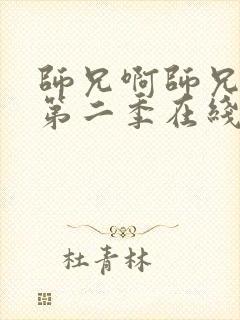 師兄啊師兄
第二季在綫
杜青林